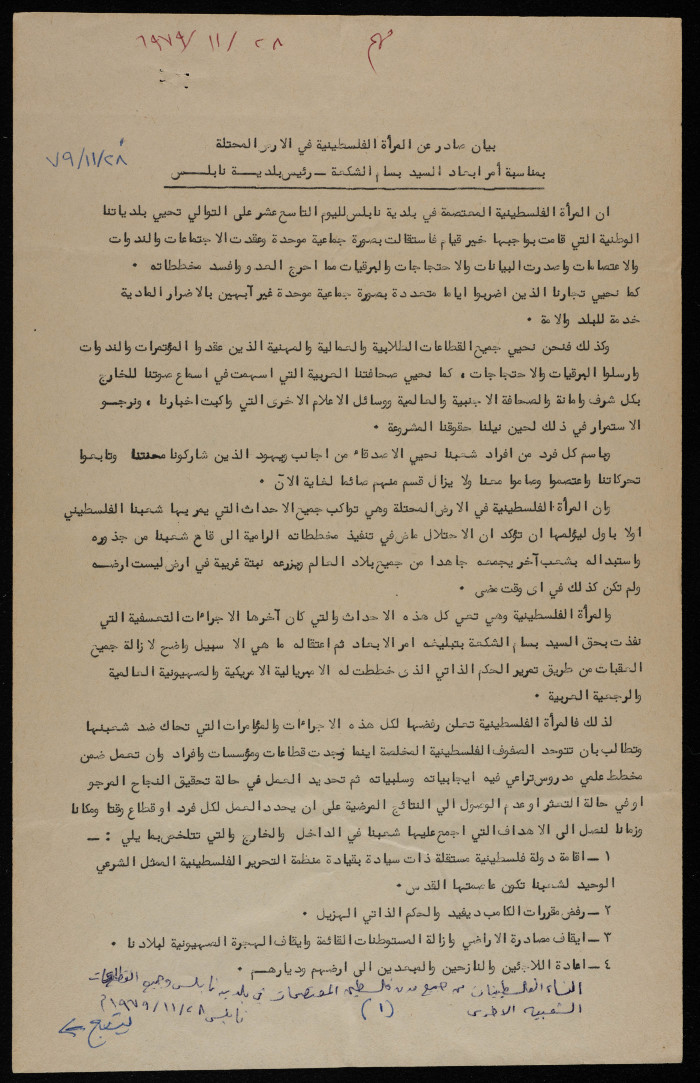 ١٩٧٩/ ١١/ ٢٨
مهم
٧٩/١١/٢٨
بيان صادر عن المرأة الفلسطينية في الارض المحتلة
بمناسبة أمر ابعاد السيد بسام الشكعة ــ رئيس بلديــة نابلــس
ان المرأة الفلسطينية المعتصمة في بلدية نابلس لليوم التاسع عشر على التوالي تحيي بلدياتنا
الوطنية التي قامت بواجبها خير قيام فاستقالت بصورة جماعية موحدة وعقدت الاجتماعات والندوات
والاعتصامات واصدرت البيانات والاحتجاجات والبرقيات مما احرج العدو وافسد مخططاته .
كما نحيي تجارنا الذين اضربوا اياما متعددة بصورة جماعية موحدة غير آبهين بالاضرار المادية
خدمة للبلد والامة .
وكذلك فنحن نحيي جميع القطاعات الطلابية والعمالية والمهنية الذين عقدوا المؤتمرات والندوات
وارسلوا البرقيات والاحتجاجات ، كما نحيي صحافتنا العربية التي اسهمت في اسماع صوتنا للخارج
بكل شرف وامانة والصحافة الاجنبية والعالمية ووسائل الاعلام الاخرى التي واكبت اخبارنا ، ونرجــو
الاستمرار في ذلك لحين نيلنا حقوقنا المشروعة .
وباسم كل فرد من افراد شعبنا نحيي الاصدقاء من اجانب ويهود الذين شاركونا محنتنا وتابعوا
تحركاتنا واعتصموا وصاموا معنا ولا يزال قسم منهم صائما لغاية الآن .
وان المرأة الفلسطينية في الارض المحتلة وهي تواكب جميع الاحداث التي يمر بها شعبنا الفلسطيني
اولا باول ليؤلمها ان تؤكد ان الاحتلال ماض في تنفيذ مخططاته الرامية الى قلع شعبنا من جذوره
واستبداله بشعب آخر يجمعه جاهدا من جميع بلاد العالم ويزرعه نبتة غريبة في ارض ليست ارضــه
ولم تكن كذلك في اى وقت مضى .
والمرأة الفلسطينية وهي تعي كل هذه الاحداث والتي كان آخرها الاجراءات التعسفية التي
نفذت بحق السيد بسام الشكعة بتبليغه امر الابعاد ثم اعتقاله ما هي الا سبيل واضح لازالة جميع
العقبات من طريق تمرير الحكم الذاتي الذى خططت له الامبريالية الامريكية والصهيونية العالمية
والرجعية العربية .
لذلك فالمرأة الفلسطينية تعلن رفضها لكل هذه الاجراءات والمؤامرات التي تحاك ضد شعبنها
وتطالب بان تتوحد الصفوف الفلسطينية المخلصة اينما وجدت قطاعات ومؤسسات وافراد وان تعمل ضمن
مخطط علمي مدروس تراعي فيه ايجابياته وسلبياته ثم تحديد العمل في حالة تحقيق النجاح المرجو
او في حالة التعثر او عدم الوصول الى النتائج المرضية على ان يحدد العمل لكل فرد او قطاع وقتا ومكانا
وزمانا لنصل الى الاهداف التي اجمع عليها شعبنا في الداخل والخارج والتي تتلخص بما يلي : ــ
١ ــ اقامة دولة فلسطينية مستقلة ذات سيادة بقيادة منظمة التحرير الفلسطينية الممثل الشرعي
الوحيد لشعبنا تكون عاصمتها القدس .
٢ ــ رفض مقررات الكامب ديفيد والحكم الذاتي الهزيل .
٣ ــ ايقاف مصادرة الاراضي وازالة المستوطنات القائمة وايقاف الهجرة الصهيونية لبلادنا .
٤ ــ اعادة اللاجئين والنازحين والمبعدين الى ارضهم وديارهــم .
النساء الفلسطينيات من جميع مدن فلسطين المعتصمات في بلدية نابلس وجميع القطاعات
الشعبية الاخرى
(١)
نابلس ١٩٧٩/١١/٢٨م
يتبع